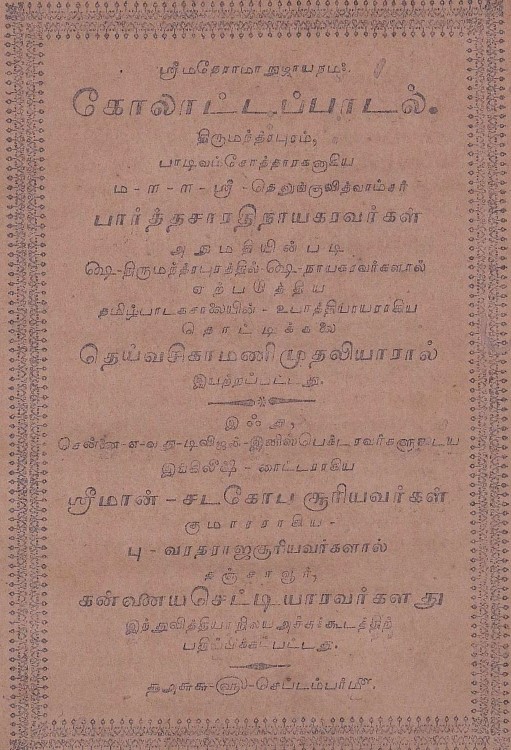 ஸ்ரீமதேராமாநுஜாயநம:.
கோலாட்டப்பாடல்.
திருமந்திரபுரம்,
பாடிவம்சோத்தாரகனாகிய
ம - ள - ள - ஸ்ரீ - தெலுங்குலித்வாம்சர்
பார்த்தசாரதிநாயகரவர்கள்
அநுமதியின்படி
௸-திருமந்திரபுரத்தில்-௸-நாயகரவர்களால்
ஏற்படுத்திய
தமிழ்பாடசாலையின் - உபாத்தியாயராகிய
தொட்டிக்கலை
தெய்வசிகாமணிமுதலியாரால்
இயற்றப்பட்டது.
இஃது,
சென்னை-எ-வது-டிவிஜன்-இனிஸ்பெக்டரவர்களுடைய
இங்கிலீஷ் - ரைட்டராகிய
ஸ்ரீமான் - சடகோபசூரியவர்கள்
குமாரராகிய-
பு - வரதராஜசூரியவர்களால்
தஞ்சாவூர்,
கண்ணயசெட்டியாரவர்களது
இந்துவித்தியாநிலயஅச்சுக்கூடத்திற்
பதிப்பிக்கப்பட்டது.
செப்டம்பர்௴.